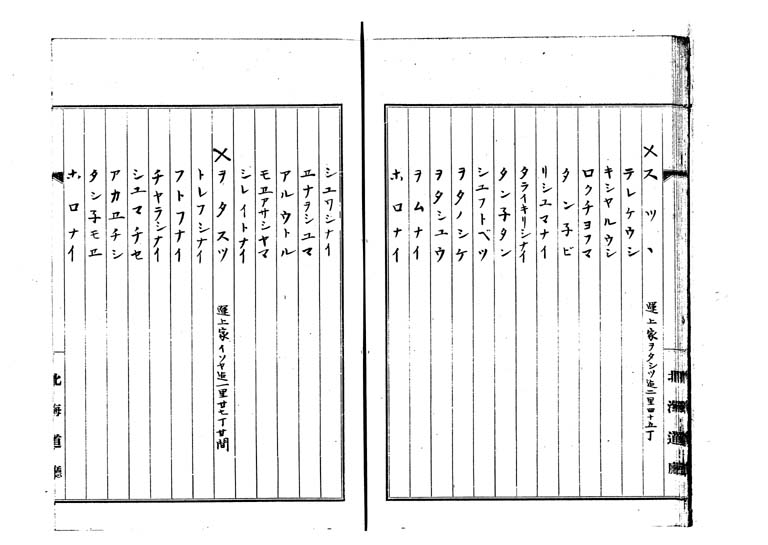 ×スツヽ 運上家ヲタシツ迄二里四十五丁
テレケウシ
キシヤルウシ
ロクチヨフマ
タン子ビ
リシユマナイ
タライキリシナイ
タン子タン
シユフトベツ
ヲタノシケ
ヲタシユウ
ヲムナイ
ホロナイ
北海道廳
シユワシナイ
ヱナヲシユマ
アルウトル
モヱアサシヤマ
シレイトナイ
×ヲタスツ 運上家イソヤ迄一里廿七丁廿間
トレフシナイ
フトフナイ
チヤラシナイ
シユマチセ
アカヱチシ
タン子モヱ
ホロナイ
北海道廳